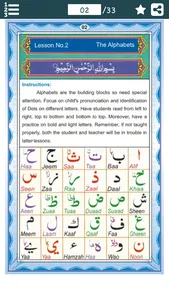 02 /33
02
Lesson No.2 The Alphabets
بِسْمِ اللهِ الرَّحْمٰنِ الرَّحِيْمِ
Instructions:
Alphabets are the building blocks so need special
attention. Focus on child's pronunciation and identification
of Dots on different letters. Have students read from left to
right, top to bottom and bottom to top. Moreover, have a
practice on bold and light letters. Remember, if not taught
properly, both the student and teacher will be in trouble in
latter-lessons.
ح ج ث ت ب ا
Haa Jeem Saa Taa Baa Alif
س ز ر ذ د خ
Seen Zaa Raa Zaal Daal Khaa
ع ظ ط ض ص ش
Aein Zuaa Tuaa Duaad Suaad Sheen
م ل ك ق ف غ
Meem Laam Kaaf Qaaf Faa Ghaein
ي ء ه و ن
Yaa Yaa Hamzah Haa Wao Noon